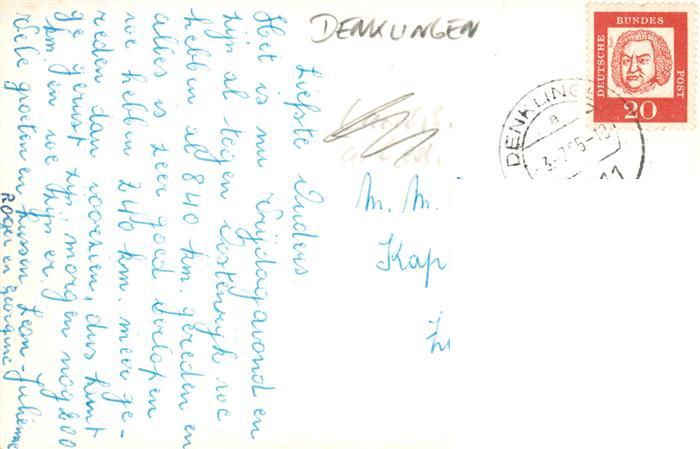 DENKLINGEN
DEUTSCHE
BUNDES
POST
20
DENKLING
a
Liefste Ouders.
Het is nu Vrijdagavond en
zijn al tegen Oostenrijk we
hebben al 840 km. gereden en
alles is zeer goed verlopen
we hebben 240 km. meer ge-
reden dan voorzien, dus kunt
ge gerust zijn morgen nog 200
km en we zijn er.
Vele groeten en kussen Leon - Julienne
Roger en Georgine
M. M.
Kap